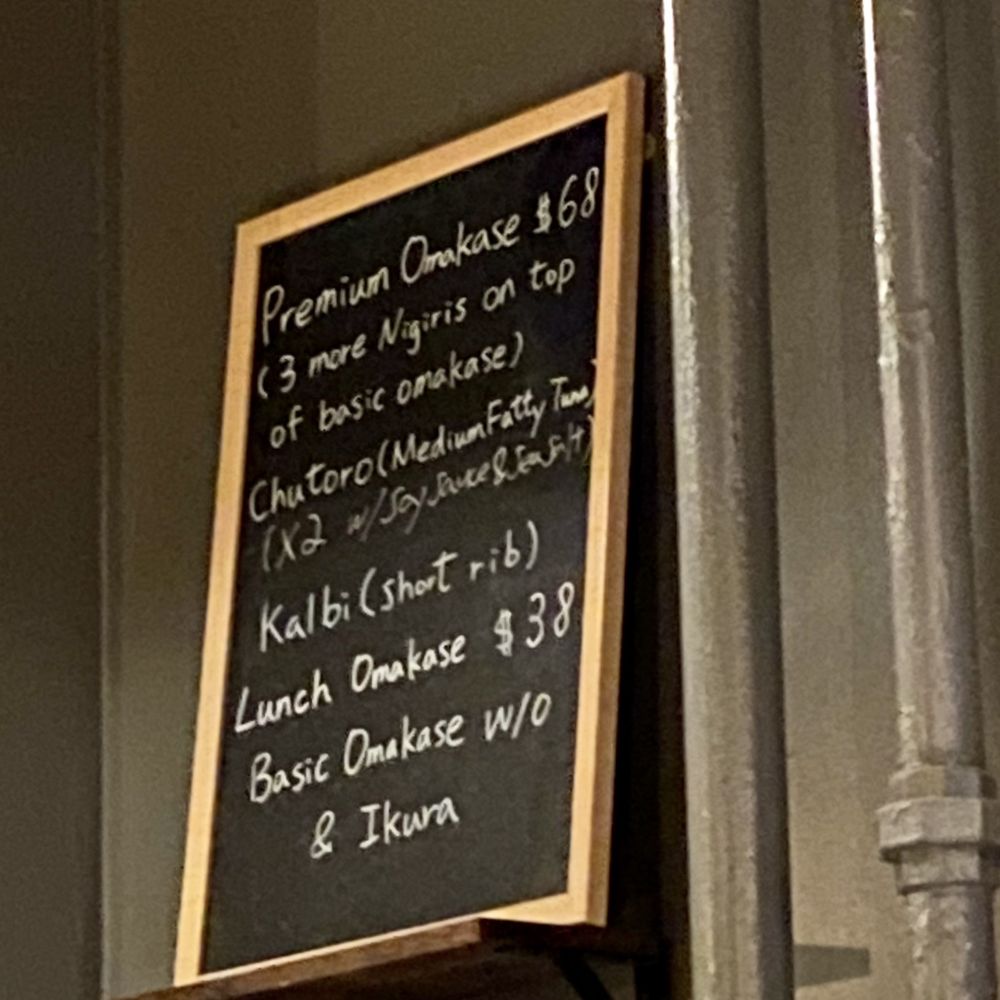 Premium Omakase $68
(3 more Nigiris on top
of basic omakase)
Chutoro (Medium Fatty Tuna)
(X2 w/ Soy Sauce & Sea Salt)
Kalbi (short rib)
Lunch Omakase $38
Basic Omakase w/o
& Ikura